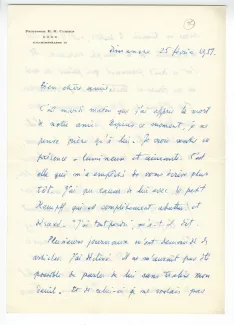 PROFESSOR E. R. CURTIUS
BONN
Dimanche 25 février 1951.
Bien chère amie,
C'est mardi matin que j'ai appris la mort
de notre ami. Depuis ce moment, je ne
pense guère qu'à lui. Je me rends sa
présence lumineuse et aimante. C'est
elle qui m'a empêché de vous écrire plus
tôt. J'ai pu causer de lui avec le petit
qui est complètement abattu et
"J'ai tout perdu", m'a-t-il dit.
Plusieurs journaux m'ont demandé des
articles. J'ai décliné. Il ne me serait pas
possible de parler de lui sans trahir mon
deuil. Et de celui-ci je ne voulais pas